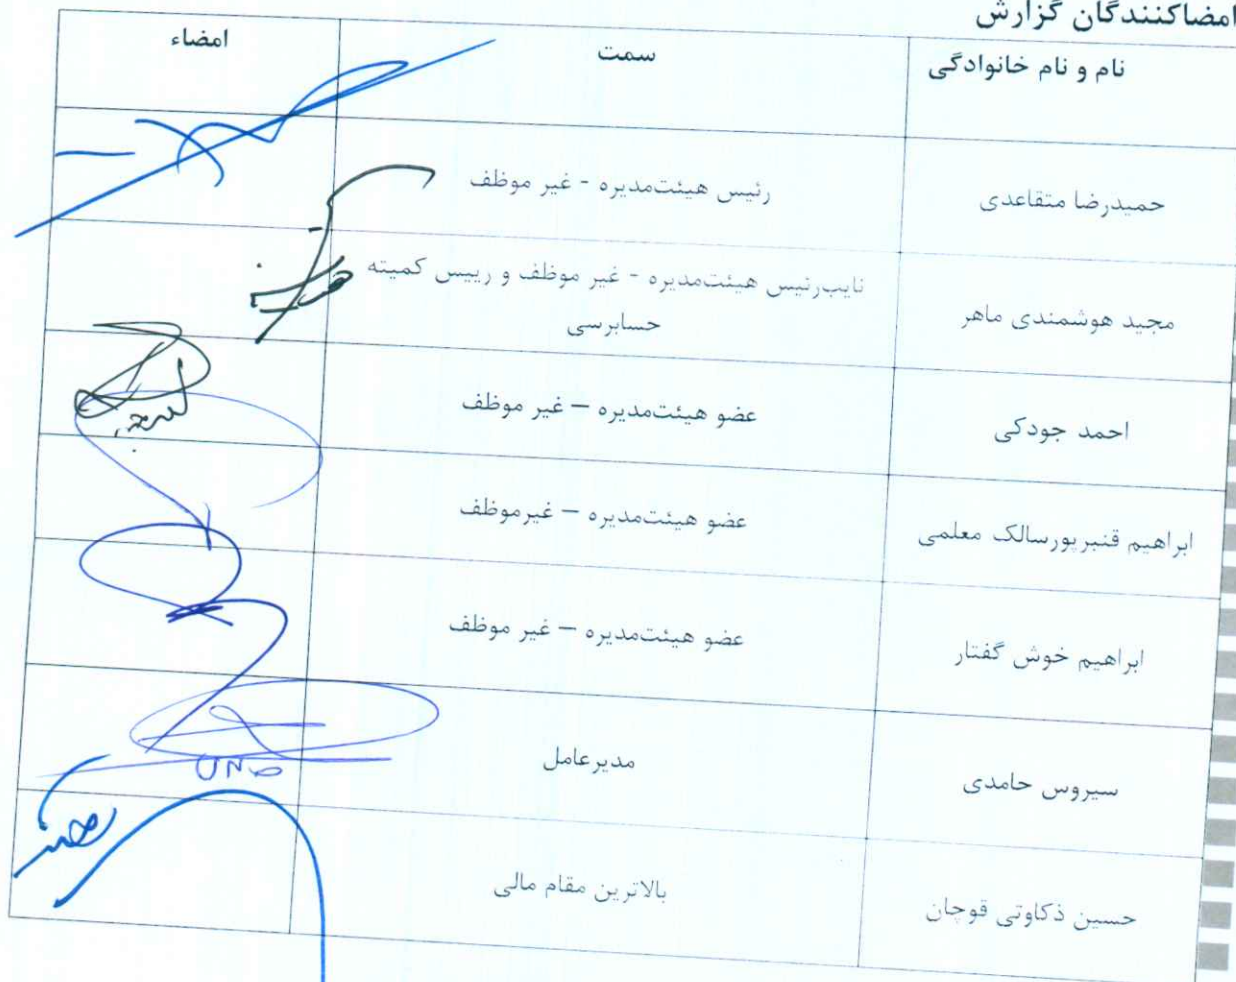 امضاکنندگان گزارش
نام و نام خانوادگی
سمت
امضاء
حمیدرضا متقاعدی
رئیس هیئت‌مدیره - غیر موظف
مجید هوشمندی ماهر
نایب‌رئیس هیئت‌مدیره - غیر موظف و رییس کمیته
حسابرسی
احمد جودکی
عضو هیئت‌مدیره – غیر موظف
ابراهیم قنبرپورسالک معلمی
عضو هیئت‌مدیره – غیرموظف
ابراهیم خوش گفتار
عضو هیئت‌مدیره – غیر موظف
سیروس حامدی
مدیرعامل
حسین ذکاوتی قوجان
بالاترین مقام مالی